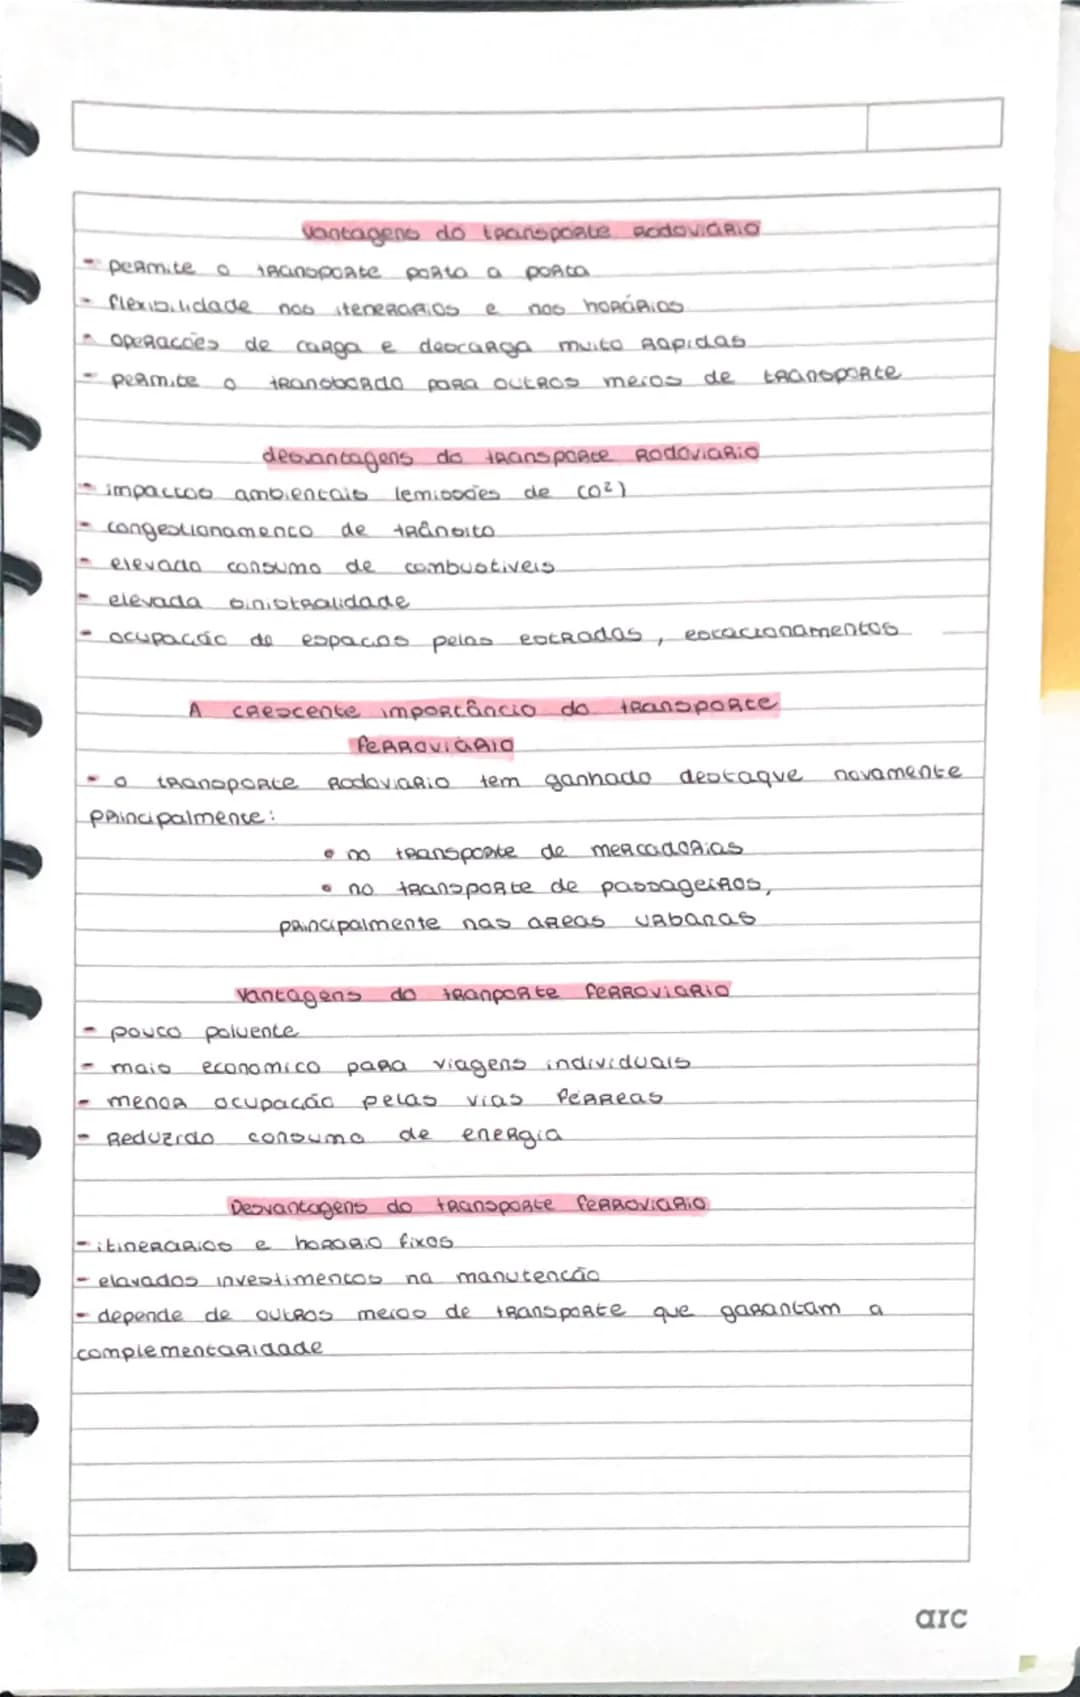 vantagens do transporte rodoviário
- permite o transporte porta a porta
- flexibilidade nos itenerarios e nos horários
- operacões de carga e descarga muito rapidas
- permite o transbordo para outros meios de transporte
desvantagens do transporte rodoviario
- impactos ambientais (emissões de CO²)
- congestionamento de trânsito
- elevado consumo de combustiveis
- elevada sinistralidade
- ocupacão de espacos pelas estradas, estacionamentos
A crescente importância do transporte
ferroviário
- o transporte rodoviario tem ganhado destaque novamente
principalmente:
• no transporte de mercadorias
• no transporte de passageiros,
principalmente nas areas urbanas
Vantagens do tranporte ferroviario
- pouco poluente
- mais economico para viagens individuais
- menor ocupacão pelas vias férreas
- Reduzido consumo de energia
Desvantagens do transporte ferroviario
- itinerarios e horario fixos
- elavados investimentos na manutencão
- depende de outros meios de transporte que garantam a
complementaridade
arc